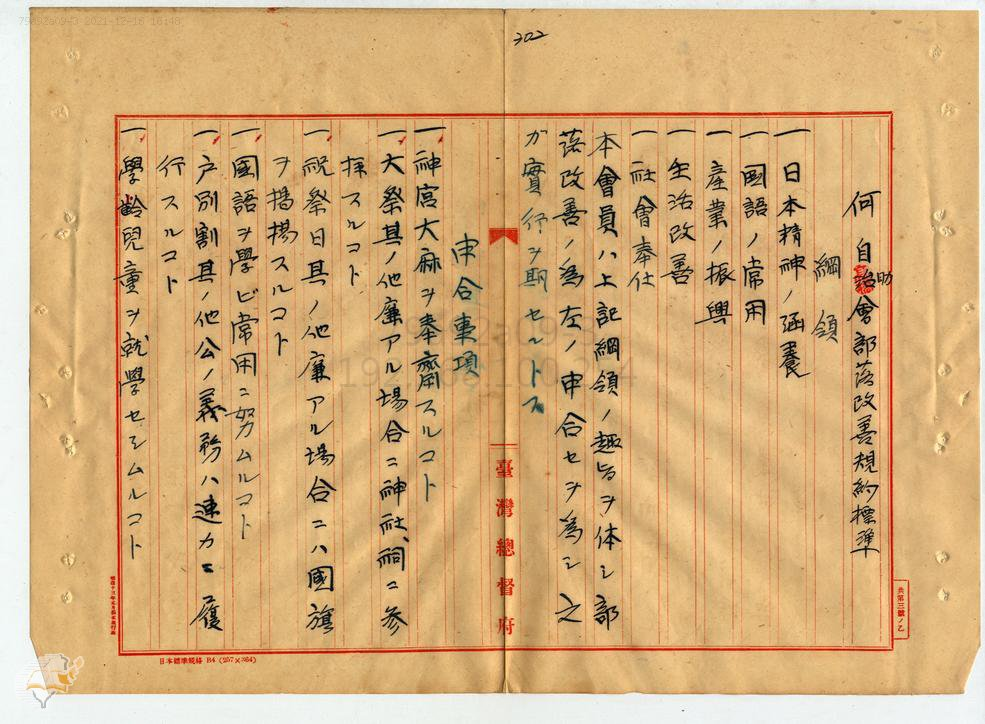 79a92a09-3 2021-12-16 16:48
302
何自治助會部落改善規約標準
綱領
一日本精神ノ涵養
一國語ノ常用
一產業ノ振興
一生活改善
一社會奉仕
本會員ハ上記綱領ノ趣旨ヲ体シ部
落改善ノ為左ノ申合セヲ為シ之
ガ實行ヲ期セントス
申合事項
一、神宮大麻ヲ奉齋スルコト
一、大祭其ノ他廉アル場合ニ神社、祠ニ參
拝スルコト
一、祝祭日其ノ他廉アル場合ニハ國旗
ヲ揭揚スルコト
一、國語ヲ學ビ常用ニ努ムルコト
一、戶別割其ノ他公ノ義務ハ速カニ履
行スルコト
一、學齡兒童ヲ就學セシムルコト
臺灣總督府
共第三號ノ乙
日本標準規格 B4 (257×364)